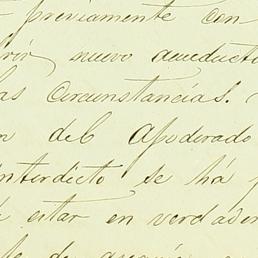 previamente con
rir nuevo acueducto
las circunstancias.
n del Apoderado
interdicto se há
estar en verdader